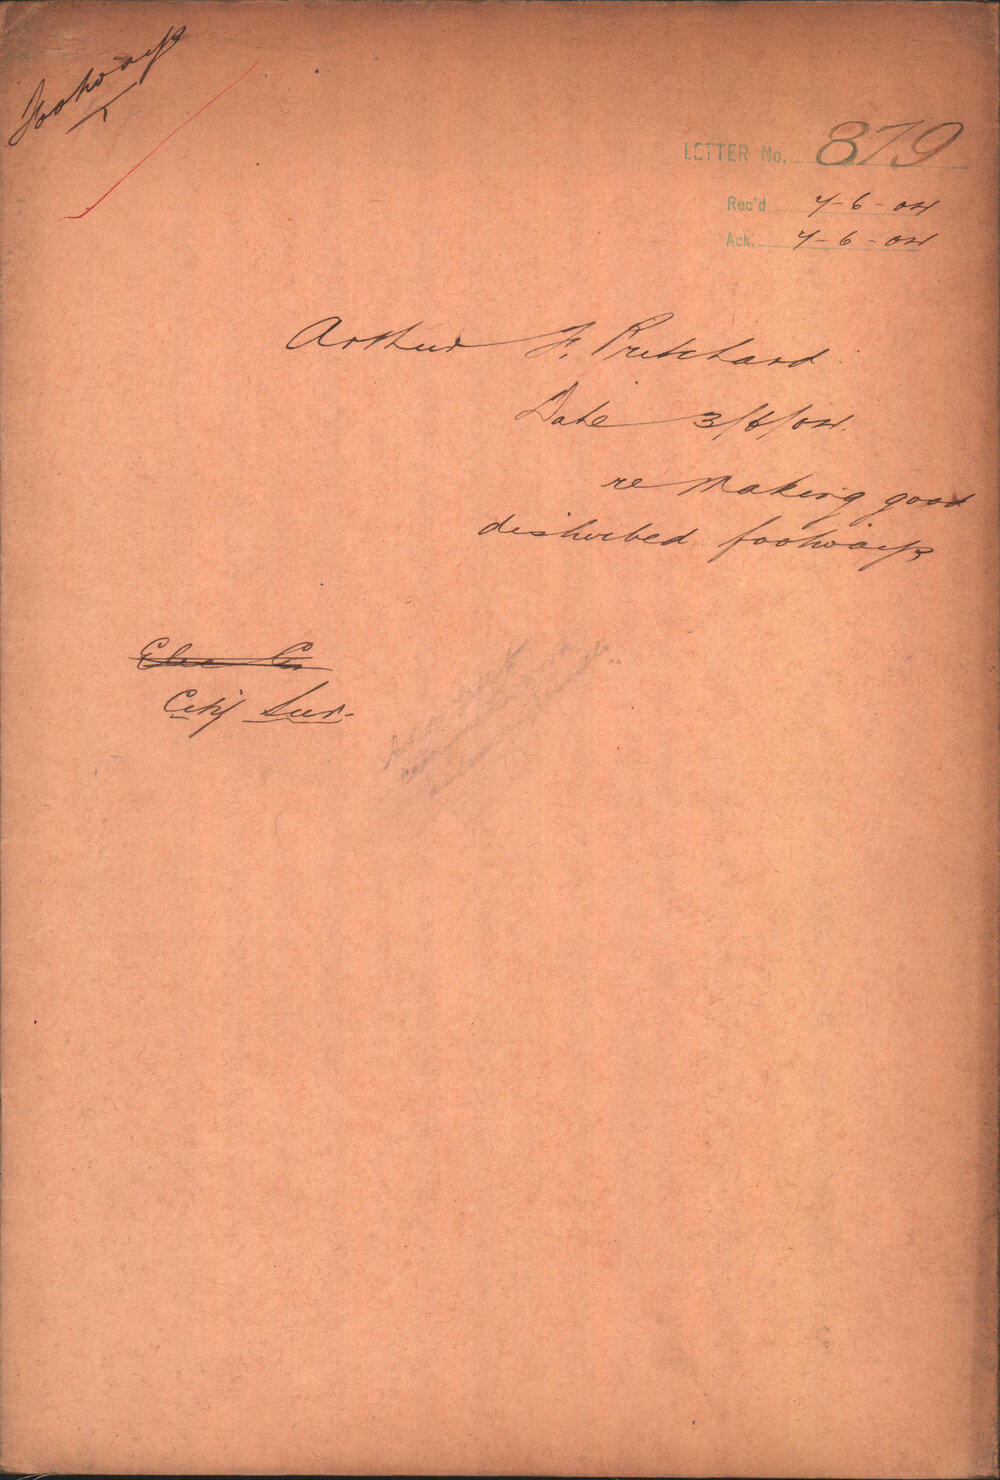 Footways
LETTER No. 879
Rec'd 7-6-04
Ack. 7-6-04
Arthur F. Pritchard
Date 3/6/04.
re making good
disturbed footways
Elec Co
City Sur.